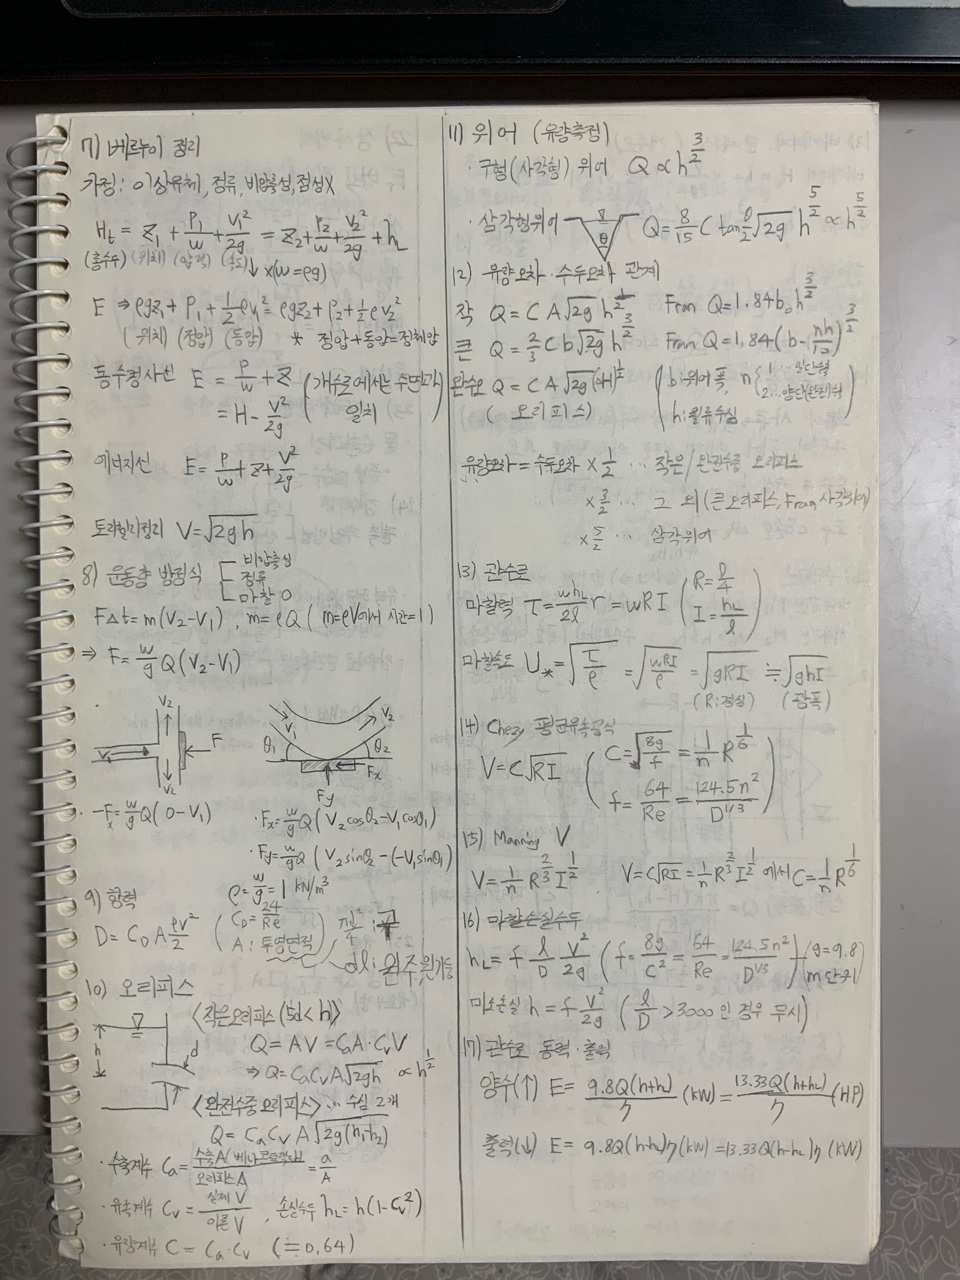 7) 베르누이 정리
가정: 이상유체, 정류, 비압축성, 점성X
Ht = Z₁ + P₁/w + V₁²/2g = Z₂ + P₂/w + V₂²/2g + hL
(총수두) (위치) (압력) (속도) ↓ ×(w=ρg)
E ⇒ ρgz₁ + P₁ + 1/2 ρv₁² = ρgz₂ + P₂ + 1/2 ρv₂²
(위치) (정압) (동압) * 정압+동압=정체압
동수경사선 E = P/w + Z (개수로에서는 수면과 일치)
= H - V²/2g
에너지선 E = P/w + Z + V²/2g
토리첼리정리 V=√2gh
8) 운동량 방정식 [ 비압축성
정류
마찰 O
F△t = m(V₂-V₁), ṁ = ρQ (m=ρV에서 시간=1)
⇒ F = w/g Q(V₂-V₁)
V₂
V₁ F
V₂
V₁ V₂
θ₁ θ₂
Fx
Fy
-Fx = w/g Q(0-V₁)
· Fx = w/g Q(V₂cosθ₂-V₁cosθ₁)
· Fy = w/g Q(V₂sinθ₂-(-V₁sinθ₁)
ρ = w/g = 1 kN/m³
9) 항력
D = C_D A ρV²/2 (C_D = 24/Re
A: 투영면적) πd²/4 :
dl: 원주, 원기둥
10) 오리피스
<작은오리피스(5d<h)>
h d
Q = AV = CaA·CvV
⇒ Q = CaCvA√2gh ∝ h^1/2
<완전수중오리피스> … 수심 2개
Q = CaCv A√2g(h₁-h₂)
· 수축계수 Ca = 수축A(베나콘트랙타)/오리피스A = a/A
· 유속계수 Cv = 실제V/이론V , 손실수두 hL = h(1-Cv²)
· 유량계수 C = Ca·Cv (≒0.64)
11) 위어 (유량측정)
· 구형(사각형) 위어 Q∝h^3/2
· 삼각형위어 θ Q = 8/15 C tan θ/2 √2g h^5/2 ∝ h^5/2
12) 유량오차·수두오차 관계
작 Q = CA√2g h^1/2 Fran Q=1.84b₀h^3/2
큰 Q = 2/3 Cb√2g h^3/2 Fran Q=1.84(b-nh/10)h^3/2
완수오 Q = CA√2g(△H)^1/2
(오리피스)
(b: 위어 폭, n{1…일단수축
2…양단(완전)위어
h: 월류수심)
유량오차 = 수두오차 × 1/2 … 작은/완전수중 오리피스
× 3/2 … 그 외 (큰오리피스, Fran 사각위어)
× 5/2 … 삼각위어
13) 관수로
마찰력 τ = whL/2l r = wRI (R=D/4
I=hL/l)
마찰속도 U* = √τ/ρ = √wRI/ρ = √gRI ≒ √ghI
(R: 경심) (광폭)
14) Chezy 평균유속공식
V = C√RI (C=√8g/f = 1/n R^1/6
f = 64/Re = 124.5n²/D^1/3)
15) Manning V
V = 1/n R^2/3 I^1/2 , V=C√RI = 1/n R^2/3 I^1/2 에서 C=1/n R^1/6
16) 마찰손실수두
hL = f l/D V²/2g (f = 8g/C² = 64/Re = 124.5n²/D^1/3) (g=9.8
m단위)
미소손실 h = f V²/2g (l/D > 3000 인 경우 무시)
17) 관수로 동력·출력
양수(↑) E = 9.8Q(h+hL)/η (kW) = 13.33Q(h+hL)/η (HP)
출력(↓) E = 9.8Q(h-hL)η (kW) = 13.33Q(h-hL)η (kW)